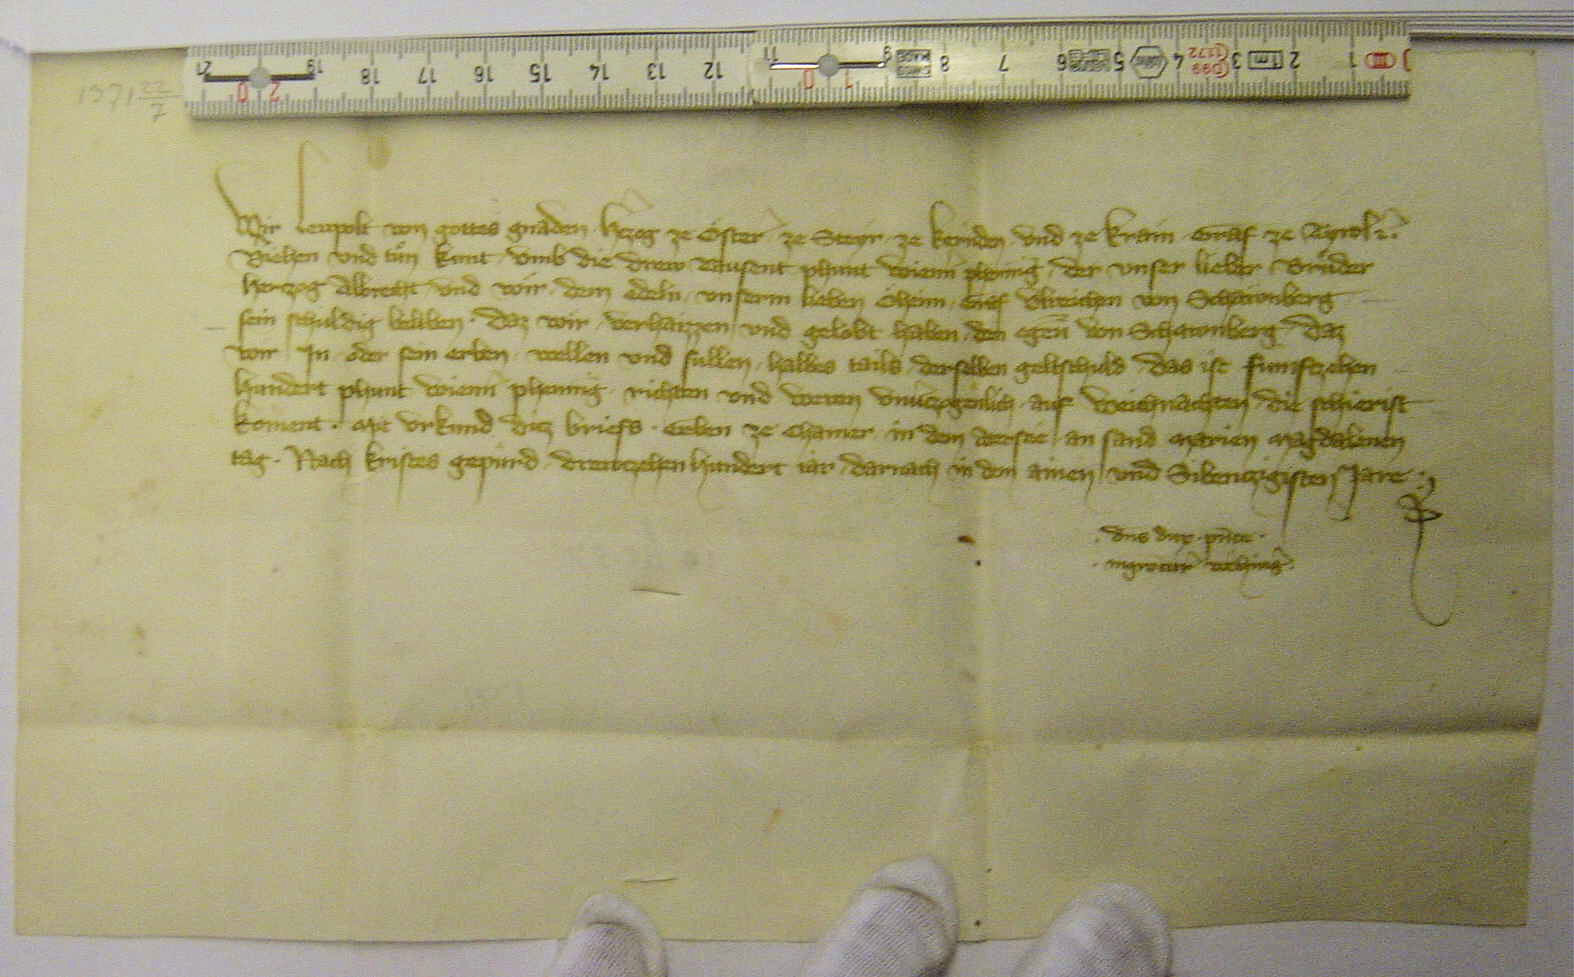 1371 22/7
Wir Leupolt von gottes gnaden herczog ze Österr ze Steyr ze kernden vnd ze krain Graf ze Tyrol etc.
Veriehen vnd tůn kunt vmb die drew tausent phunt wienn phenig der vnser lieber Brůder
herczog Albrecht vnd wir dem edeln vnserm lieben Öheim Graf Vlreichen von Schawnberg
sein schuldig beliben . daz wir verhaizzen vnd gelobt haben dem egen von Schawnberg daz
wir In oder sein erben wellen vnd sullen halbes tails derselben geltschuld das ist fumfczehen
hundert phunt wienn phennig richten vnd weren vnuerczogenlich auf weichnachten die schierist
koment . Mit vrkund dicz briefs . Geben ze in dem an sand Marien Magdalenen
tag . Nach kristes gepurd drewczehen hundert iar darnach in dem ainen vnd Sibenczigisten Jare
. dns dux .